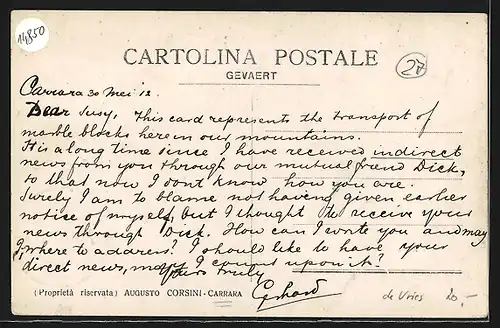 14850
CARTOLINA POSTALE
GEVAERT
27
Carrara 30 Mei 12.
Dear Susy, This card represents the transport of
marble blocks here in our mountains.
It is a long time since I have received indirect
news from you through our mutual friend Dick,
so that now I dont know how you are.
Surely I am to blame not having given earlier
notice of myself, but I thought to receive your
news through Dick. How can I write you and
where to address? I should like to have your
direct news, may I count upon it?
Yours truly
Gerhard
(Proprietà riservata) AUGUSTO CORSINI-CARRARA
de Vries 20,-